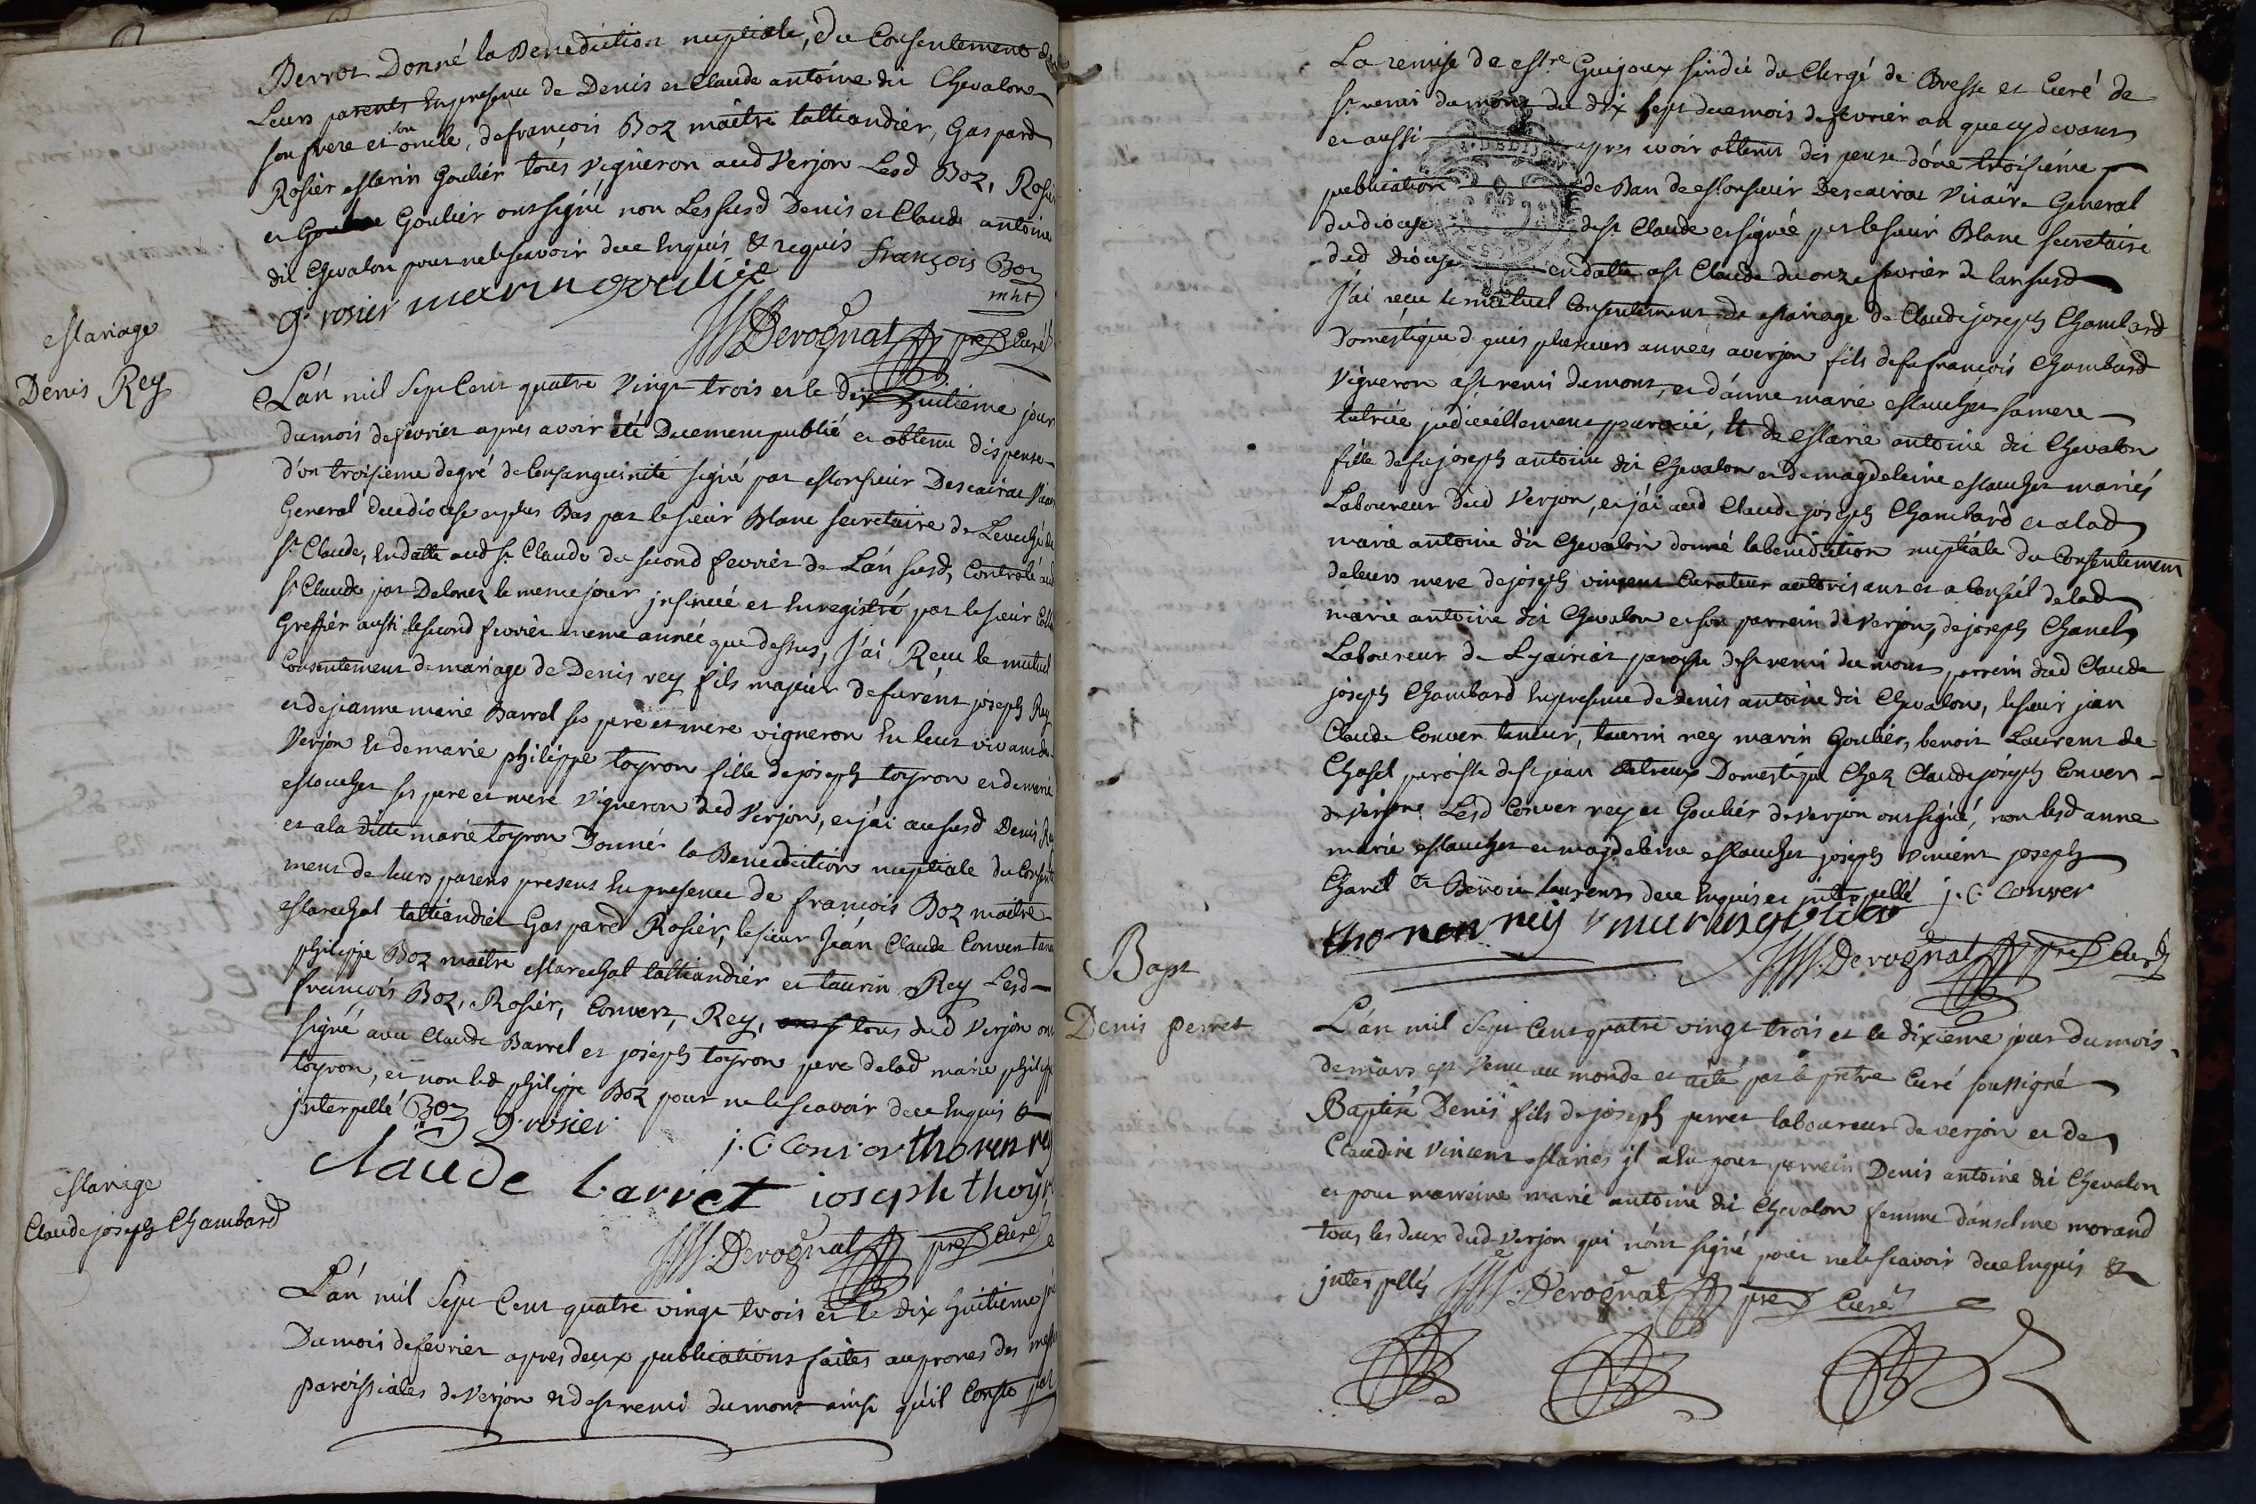 Berrot Donné la Benediction nuptiale, & du Consentement de
Leurs parents En presence de Denis et Claude antoine dit Chevalon
son frere et son oncle, de françois Boz maître taillandier, Gaspard
Rosier Marin Goulier tous vigneron aud Verjon Lesd Boz, Rosier
et Goulier ont signé non Les susd Denis et Claude antoine
dit Chevalon pour ne le scavoir de ce Enquis & requis françois Boz
mht
g. rosier marin goulier
Derognat pre Curé
Mariage
Denis Rey
L'án mil sept Cent quatre vingt trois et le Dix huitieme jour
du mois de fevrier apres avoir été Duement publié et obtenu dispense
d'un troisieme degré de Consanguinité signé par Monsieur Descairac Vicaire
General du diocese et plus Bas par le sieur Blanc secretaire de L'eveché de
st Claude, En datte aud st Claude du second fevrier de L'án susd, Controlé aud
st Claude par Delorez le meme jour insinué et Enregistré par le sieur
Greffier aussi le second fevrier meme année que dessus, J'ai Reçu le mutuel
Consentement de mariage de Denis rey fils majeur de furent joseph Rey
et de jeanne marie Barrel ses pere et mere vigneron En leur vivant de
Verjon Et de marie philippe toyron fille de joseph toyron et de marie
Moucher ses pere et mere vigneron dud Verjon, et j'ai au susd Denis Rey
et a la ditte marie toyron Donné la Benediction nuptiale du Consente
ment de leurs parens presens En presence de francois Boz maitre
Marechal taillandier Gaspard Rosier, le sieur Jeán Claude Conver tanneur
philippe Boz maitre Marechal taillandier et taurin Rey Lesd
françois Boz, Rosier, Convert, Rey, tous dud Verjon ont
signé avec Claude Barrel et joseph toyron pere de lad marie philippe
toyron, et non led philippe Boz pour ne le scavoir de ce Enquis &
jnterpellé Boz g. rosier
j. C Conver thoren rey
claude barret ioseph thoyr
Derognat pre Curé
Mariage
Claude joseph Chambard
L'án mil Sept Cent quatre vingt trois et le Dix huitieme jr
Du mois de fevrier apres deux publications faites au prones des messes
paroissiales de Verjon et de st remi du mont ainsi qu'il Conste par
La remise de Mre Guigoux sindic du Clergé de Bresse et Curé de
st remi du mont du dix sept du mois de fevrier an que cy devant
et aussi apres avoir obtenu dispense d'une troisiéme
publication de Ban de Monsieur Descairac Vicaire General
du diocese de st Claude et signée par le sieur Blanc secretaire
dud diocese en datte a st Claude du onze fevrier de l'an susd
J'ai reçu le mutuel Consentement de Mariage de Claude joseph Chambard
Domestique depuis plusieurs années a verjon fils de fu françois Chambard
Vigneron a st remi du mont, et d'anne marie Maucher sa mere
tutrice judiciellement pourvue, Et de Marie antoine dit Chevalon
fille de fu joseph antoine dit Chevalon et de magdeleine Maucher mariés
Laboureur dud Verjon, et j'ai aud Claude joseph Chambard et a lad
marie antoine dit Chevalon donné la benediction nuptiale du Consentement
de leurs mere de joseph vincent Curateur autorisant et a Conseil de lad
marie antoine dit Chevalon et son parrein de Verjon, de joseph Chanel
Laboureur de Lyairiat paroisse de st remi du mont parrein dud Claude
joseph Chambard En presence de denis antoine dit Chevalon, le sieur jean
Claude Conver tanneur, taurin rey marin Goulier, benoit Laurent de
Chasel paroisse de st jean detreux Domestique Chez Claude joseph Conver
de Verjon. Lesd Conver rey et Goulier de Verjon ont signé, non lesd anne
marie Maucher et magdeleine Maucher joseph vincent joseph
Chanel Et Benoit laurent de ce Enquis et jnterpellé j. C Conver
thoren reij marin goulier
Derognat pre Curé
Bapt
Denis perret
L'án mil Sept Cent quatre vingt trois et le dixieme jour du mois
de mars est venu au monde et a été par le prétre Curé soussigné
Baptisé Denis fils de joseph perret laboureur de verjon et de
Claudine Vincent Mariés il a eu pour parrein Denis antoine dit Chevalon
et pour marreine marie antoine dit Chevalon femme d'anselme morand
tous les deux dud Verjon qui n'ont signé pour ne le scavoir de ce Enquis &
jnterpellés Derognat pre Curé